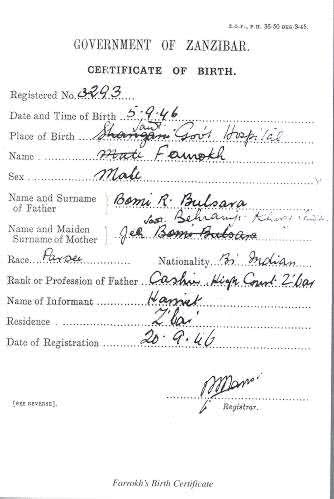 Z.G.P., P.H. 35 50 DKS 3-45.
GOVERNMENT OF ZANZIBAR.
CERTIFICATE OF BIRTH.
Registered No. 3293
Date and Time of Birth 5.9.46
Place of Birth Shangani Govt Hospital
Name Male Farrokh
Sex Male
Name and Surname of Father Bomi R. Bulsara
Name and Maiden Surname of Mother Jer Bomi Bulsara
Race Parsee Nationality Br Indian
Rank or Profession of Father Cashier High Court Z'bar
Name of Informant
Residence Z'bar
Date of Registration 20.9.46
Registrar.
[SEE REVERSE].
Farrokh's Birth Certificate